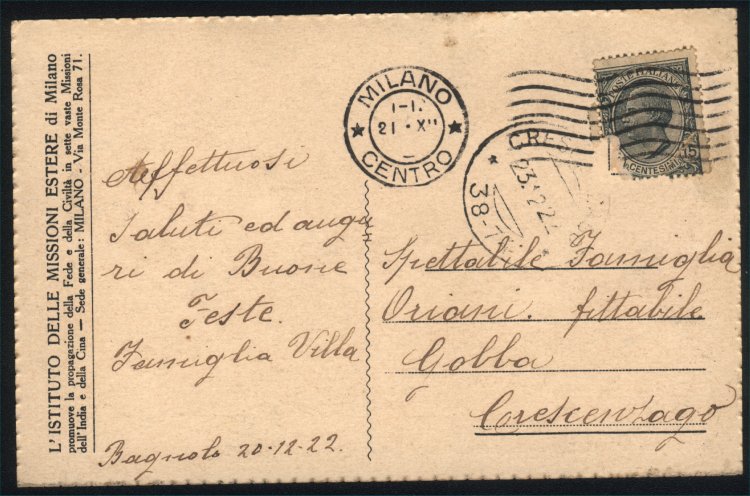 L'ISTITUTO DELLE MISSIONI ESTERE di Milano
promuove la propagazione della Fede e della Civiltà in sette vaste Missioni
dell'India e della Cina — Sede generale: MILANO - Via Monte Rosa 71.
Affettuosi
Saluti ed augu
ri di Buone
Feste.
Famiglia Villa
Bagnolo 20-12-22.
MILANO
21 · XII
CENTRO
POSTE ITALIANE
15
CENTESIMI
38-
Spettabile Famiglia
Oriani. fittabile
Gobba
Crescenzago